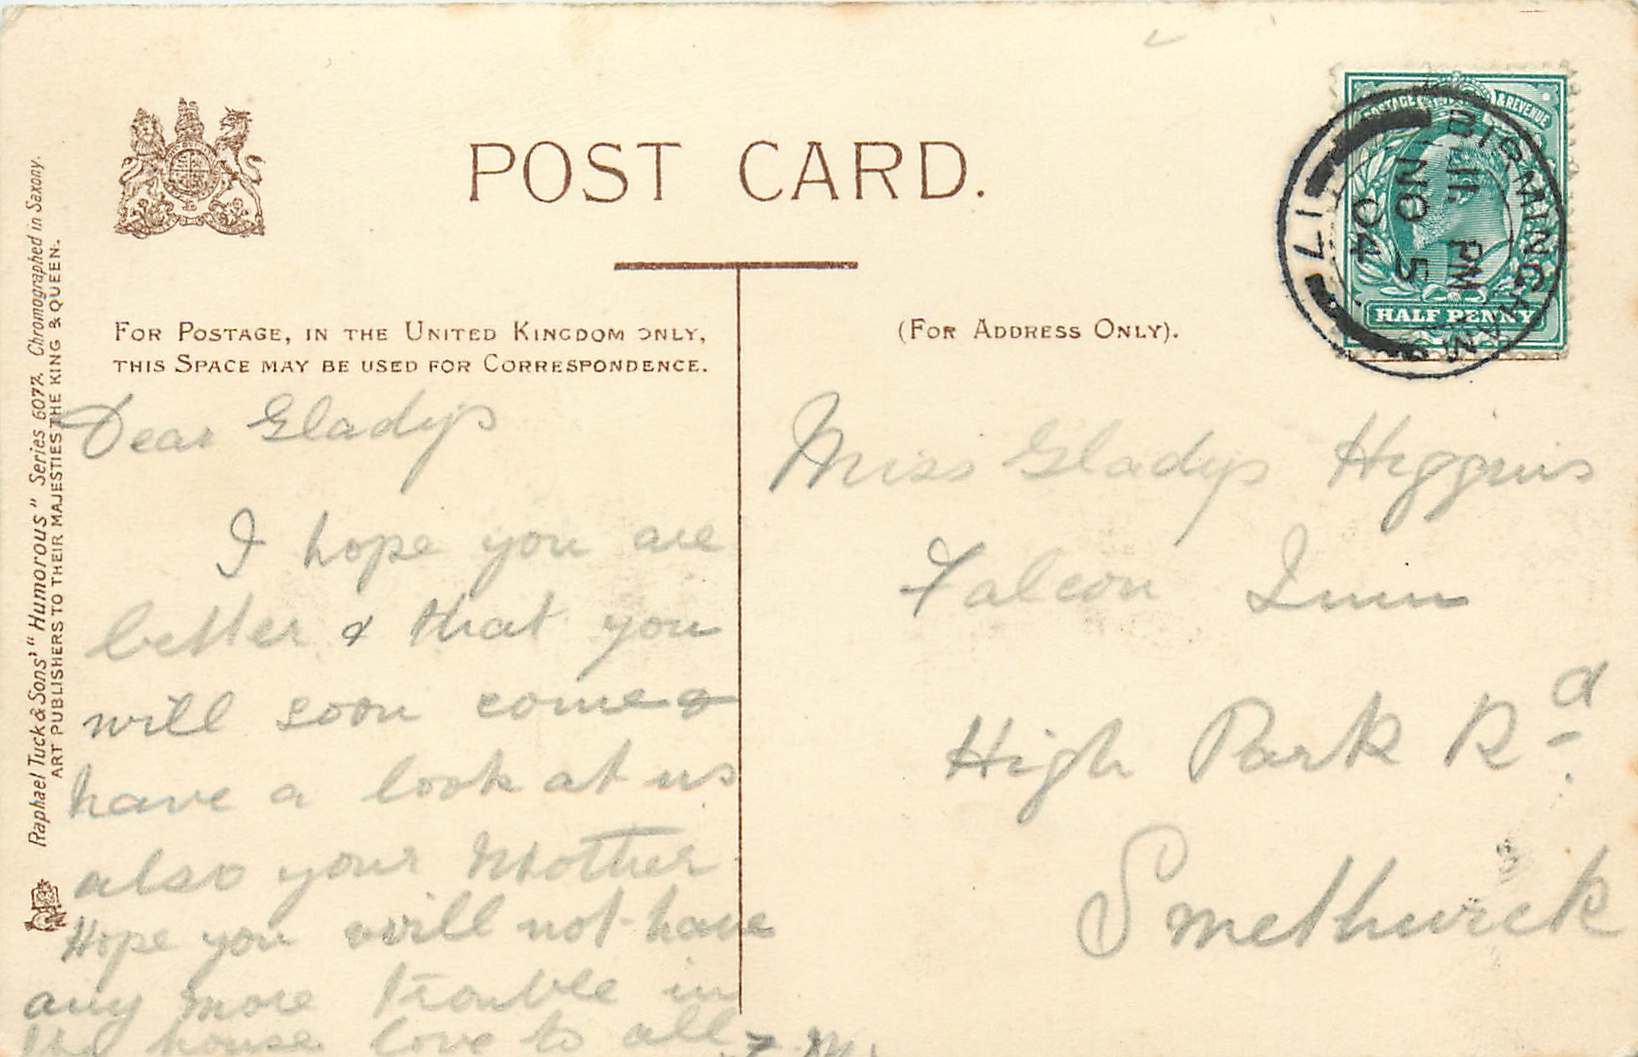 POST CARD.
FOR POSTAGE, IN THE UNITED KINGDOM ONLY,
THIS SPACE MAY BE USED FOR CORRESPONDENCE.
(FOR ADDRESS ONLY).
Raphael Tuck & Sons' "Humorous" Series 6077. Chromographed in Saxony.
ART PUBLISHERS TO THEIR MAJESTIES THE KING & QUEEN.
POSTAGE & REVENUE
HALF PENNY
BIRMINGHAM
PM
NO 5
04
17
Dear Gladys
I hope you are
better & that you
will soon come &
have a look at us
also your Mother
Hope you will not have
any more trouble in
the house love to all
Miss Gladys Higgins
Falcon Inn
High Park Rd
Smethwick